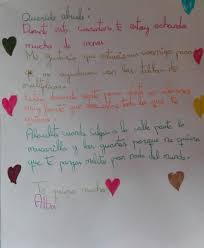 Querido abuelo:
Durante esta cuarentena te estoy echando
mucho de menos
Me gustaría que estuvieras conmigo para
que me ayudaras con las tablas de
multiplicar.
muy fuerte que
Abuelito cuando salgas a la calle ponte la
mascarilla y los guantes porque no quiero
que te pongas malito por nada del mundo.
Te quiero mucho
Alba